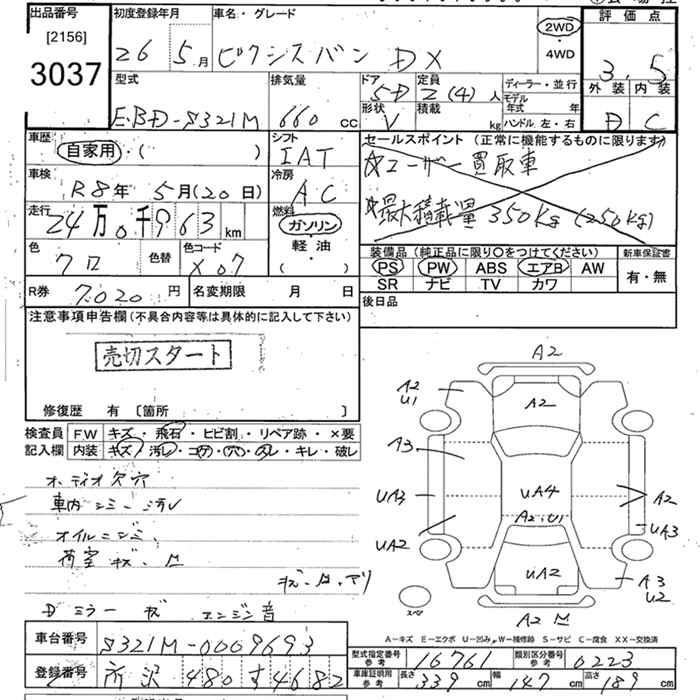 出品番号
[2156]
3037
初度登録年月
26 5月
車名・グレード
ピクシスバン DX
2WD
・
4WD
評価点
3.5
外装 内装
D C
型式
EBD-S321M
排気量
660 cc
ドア
5D
定員
2(4)人
形状
V
積載
kg
ディーラー・並行
モデル年式 年
ハンドル 左・右
車歴
自家用・( )
シフト
IAT
セールスポイント (正常に機能するものに限ります)
☆ユーザー買取車
☆最大積載量 350kg (250kg)
車検
R8年 5月(20日)
冷房
AC
走行
24万0千963 km
燃料
ガソリン
・
軽油
・
( )
色
クロ
色替
色コード
X07
装備品 (純正品に限り○をつけてください)
PS PW ABS エアB AW
SR ナビ TV カワ
新車保証書
有・無
R券 7020円
名変期限 月 日
後日品
注意事項申告欄(不具合内容等は具体的に記入して下さい)
売切スタート
修復歴 有 〔箇所 〕
検査員
記入欄
FW キズ・飛石・ヒビ割・リペア跡・×要
内装 キズ・汚レ・コゲ・穴・スレ・キレ・破レ
オーディオ欠穴
車内シミ・汚レ
オイルニジミ
荷室キズ・凹
Dミラーキズ エンジン音
A2
A2
U1
A2
A3
UA3
UA4
A2
UA3
A2・U1
UA2
UA2
A3
U2
スペア
A2
A-キズ E-エクボ U-凹み W-補修跡 S-サビ C-腐食 XX-交換済
車台番号
S321M-0009693
登録番号
所沢 480 す 4682
型式指定番号
参考
16761
類別区分番号
参考
0223
車庫証明用
参考
長さ 339 cm
幅 147 cm
高さ 189 cm